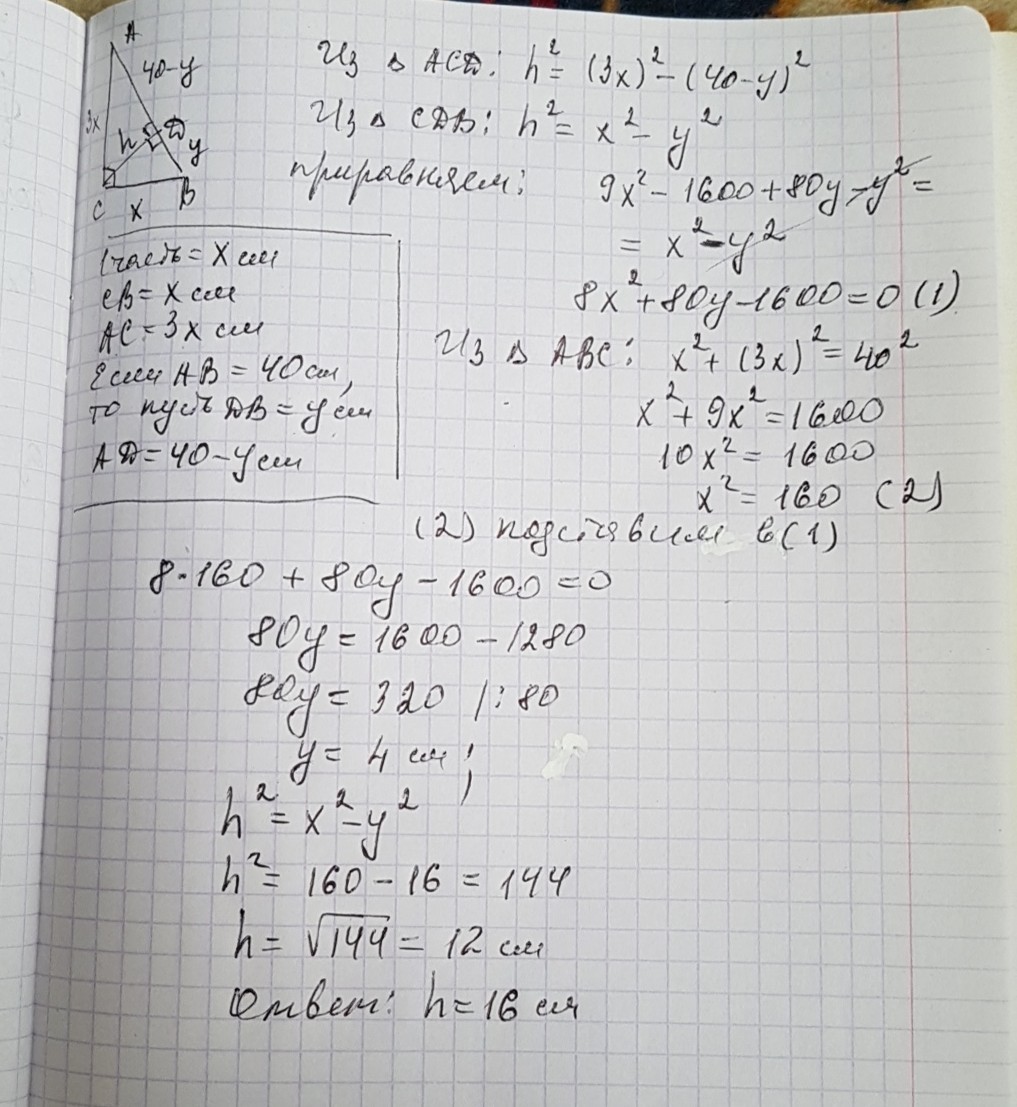 A
40-y
3x
h
D
y
C
x
B
Из △ ACD: h² = (3x)² - (40-y)²
Из △ CDB: h² = x² - y²
приравняем: 9x² - 1600 + 80y - y² =
= x² - y²
8x² + 80y - 1600 = 0 (1)
1 часть = x см
CB = x см
AC = 3x см
Если AB = 40 см,
то пусть DB = y см
AD = 40 - y см
Из △ ABC: x² + (3x)² = 40²
x² + 9x² = 1600
10x² = 1600
x² = 160 (2)
(2) подставим в (1)
8·160 + 80y - 1600 = 0
80y = 1600 - 1280
80y = 320 /:80
y = 4 см;
h² = x² - y²
h² = 160 - 16 = 144
h = √144 = 12 см
Ответ: h = 16 см